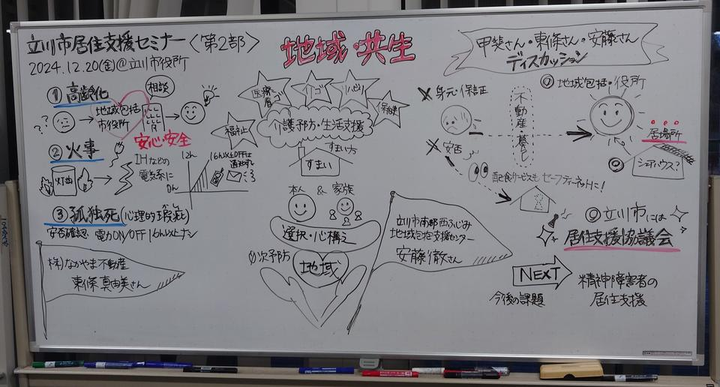 立川市居住支援セミナー〈第2部〉
2024.12.20(金)@立川市役所
地域・共生
甲斐さん・東條さん・安藤さん
ディスカッション
① 高齢化
??
地域包括
市役所
相談
安心・安全
② 火事
灯油
IHなどの
電気系に
③ 孤独死(心理的瑕疵)
安否確認 電力ON/OFF 16h以上ナシ
(株)なかやま不動産
東條真由美さん
医療
看護
リハビリ
保健
福祉
介護予防・生活支援
すまい方
すまい
本人 & 家族
選択・心構え
0次予防
地域
立川市南部西ふじみ
地域包括支援センター
安藤徹さん
× 身元・保証
× 安否
不動産・暮らし
地域包括・役所
居場所
シェアハウス?
配食サービスをセーフティーネットに!
◎立川市には
居住支援協議会
NEXT
今後の課題
精神障害者の
居住支援